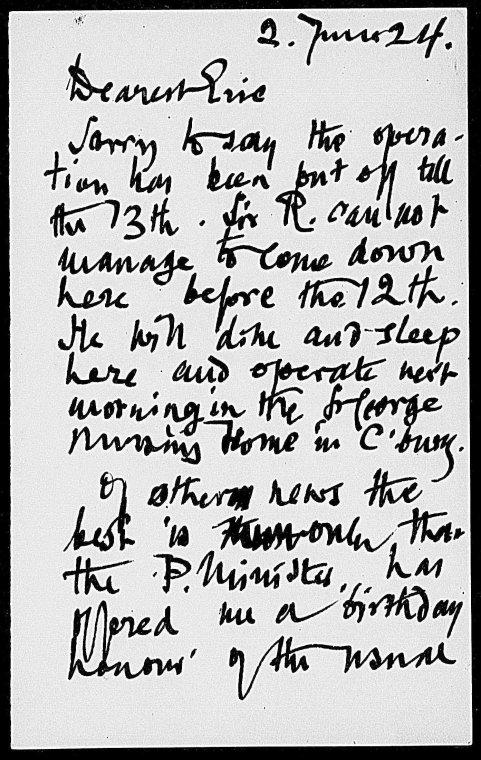 2. June 24.
Dearest Eric
Sorry to say the opera-
tion has been put off till
the 13th. Sir R. can not
manage to come down
here before the 12th.
He will dine and sleep
here and operate next
morning in the St George
Nursing Home in C'bury.
Of other news the
best is only that
the P. Minister has
offered me a 'birthday
honour' of the usual